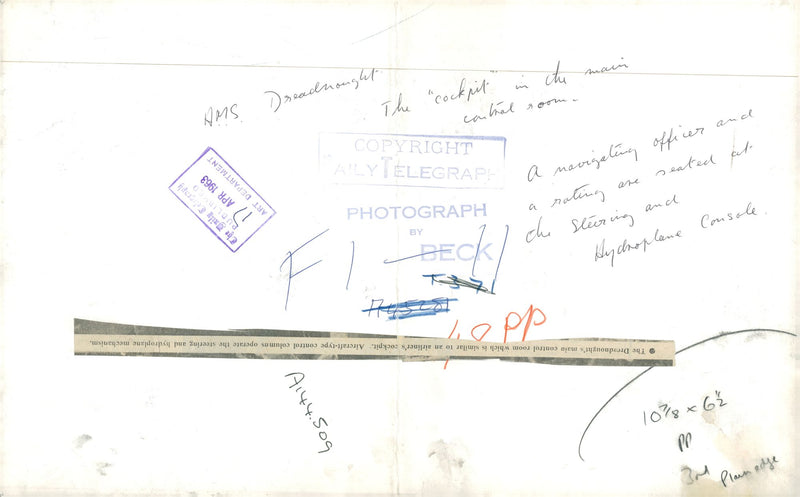 HMS. Dreadnought
The "cockpit" in the main
control room.
A navigating officer and
a rating are seated at
the Steering and
Hydroplane Console.
COPYRIGHT
DAILY TELEGRAPH
PHOTOGRAPH
BY
BECK
The Daily Telegraph
PUBLISHED
17 APR 1963
ART DEPARTMENT
F1 — 11
T371
40 PP
● The Dreadnought's main control room which is similar to an airliner's cockpit. Aircraft-type control columns operate the steering and hydroplane mechanism.
A144.509
10 7/8 x 6 1/2
PP
3rd Plain edge